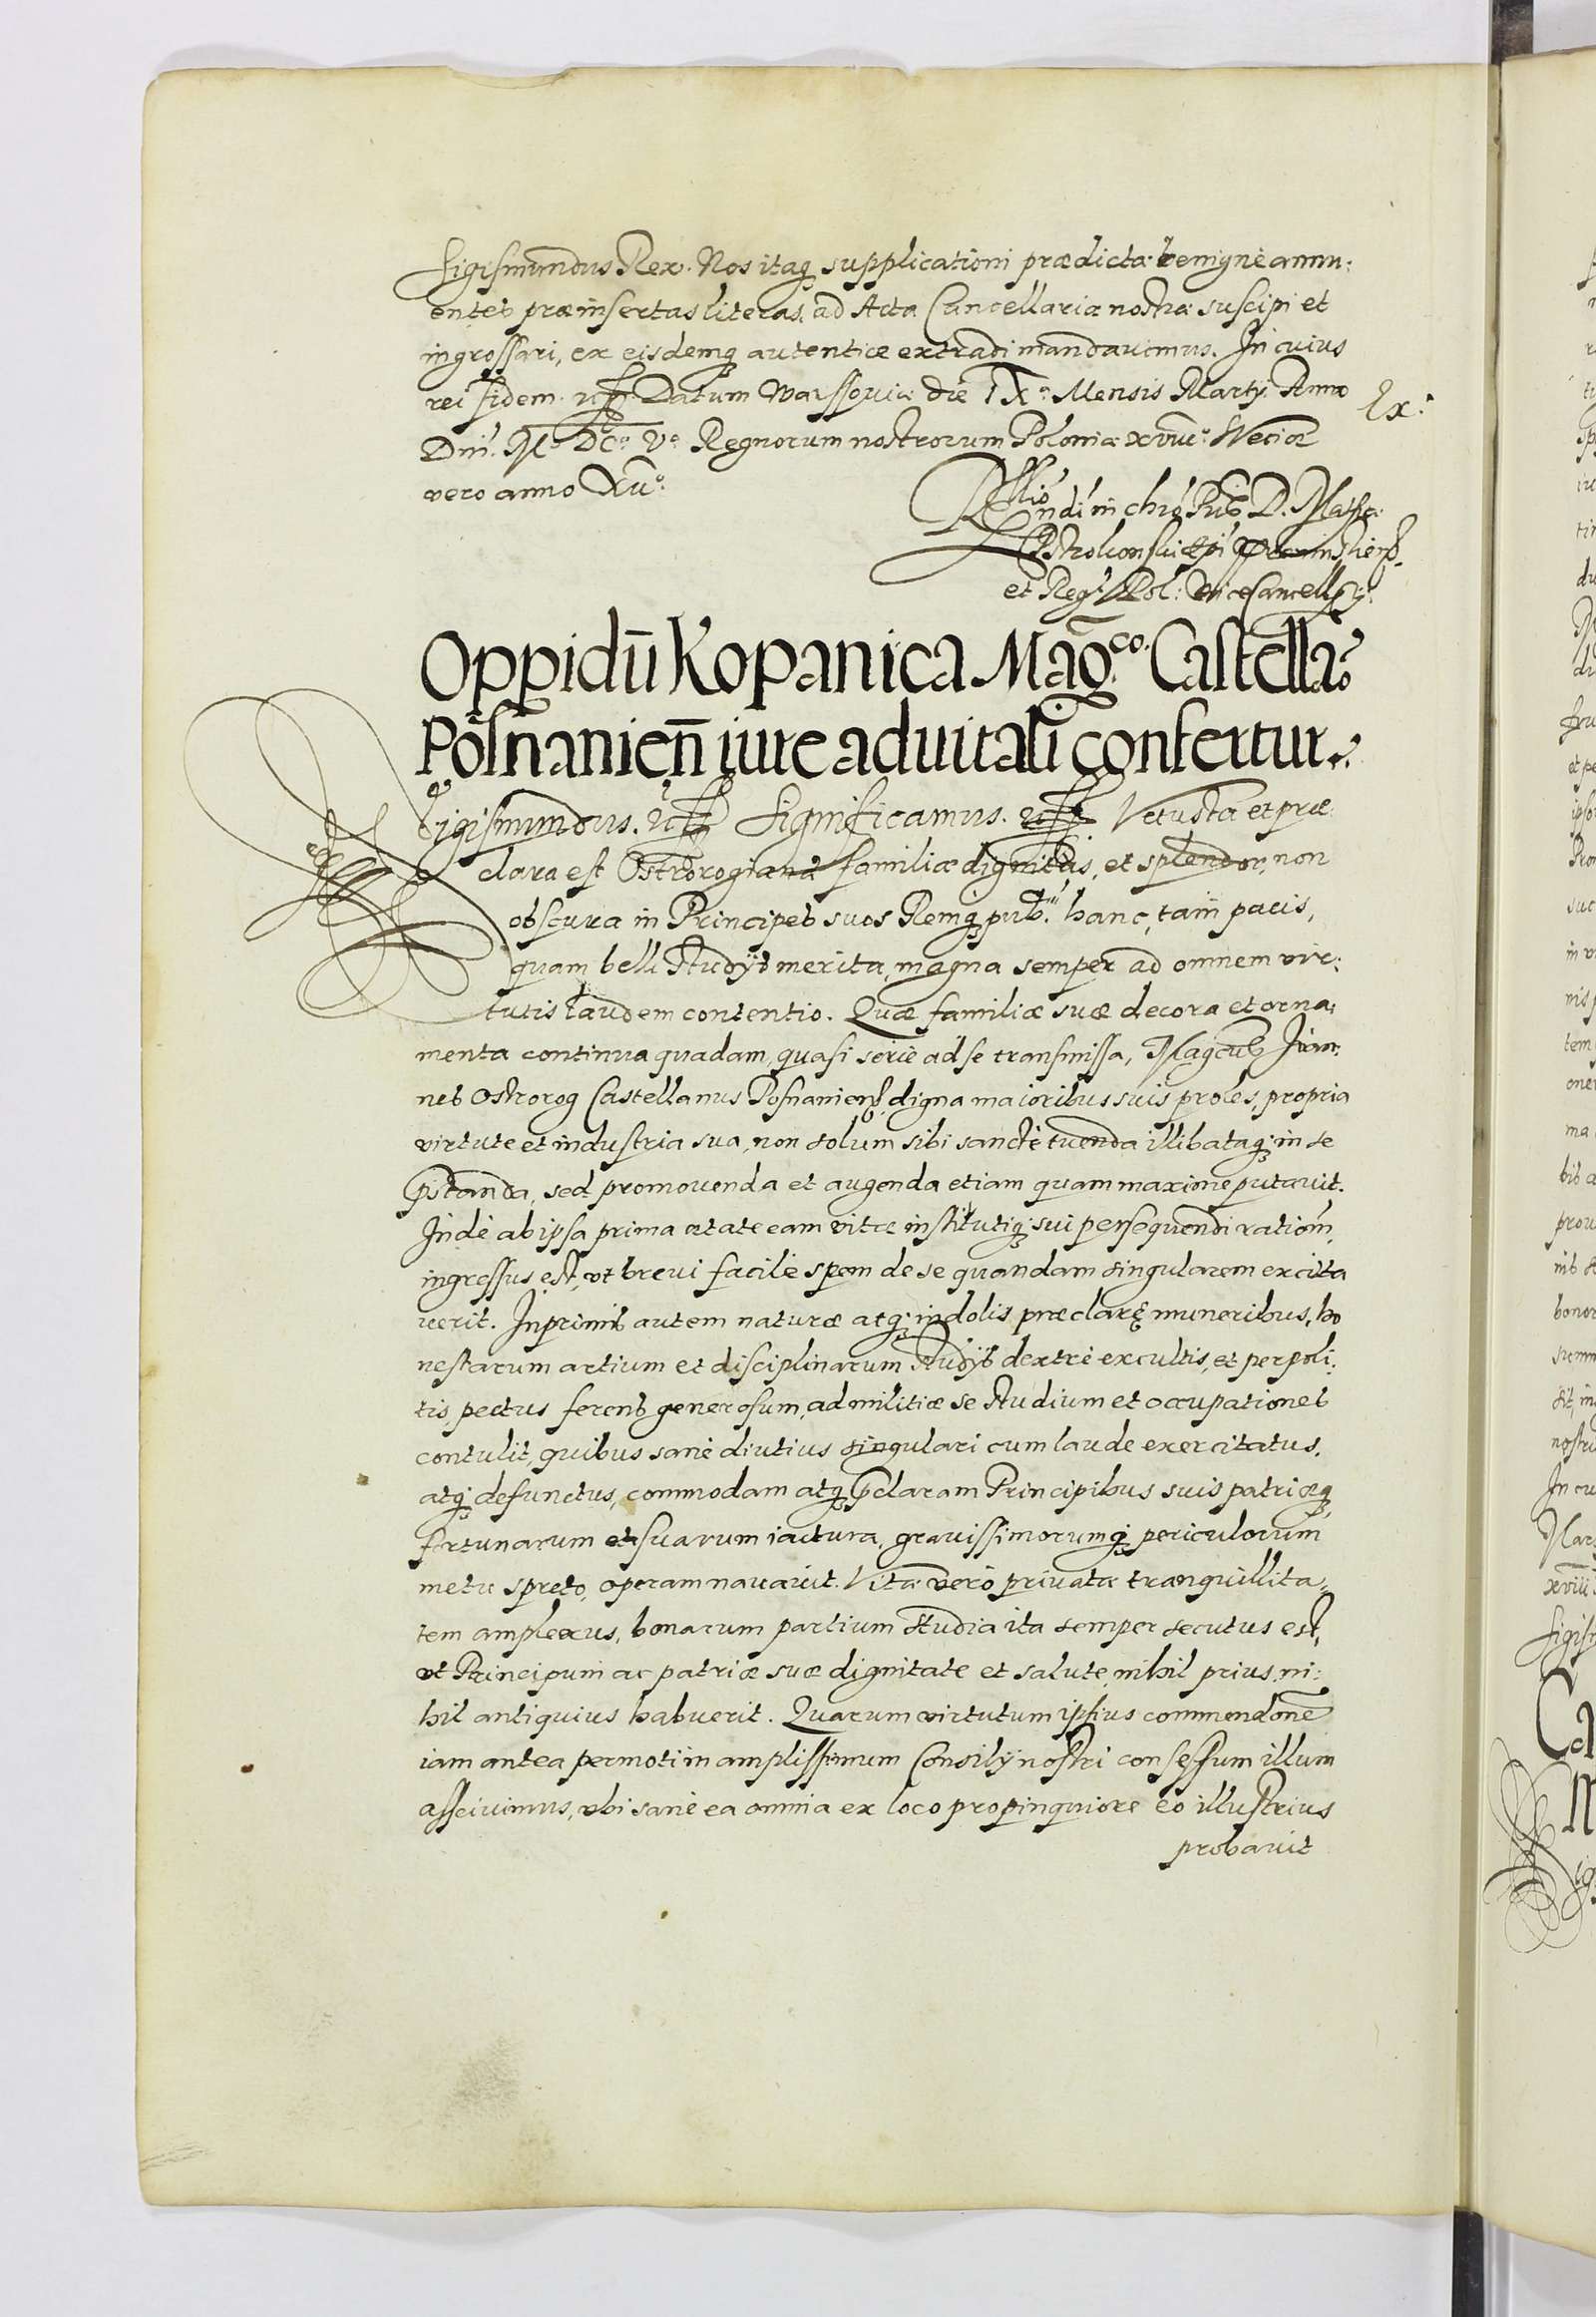 Sigismundus Rex. Nos itaq; supplicationi prædictæ benignè annu:
entes præinsertas literas, ad Acta Cancellariæ nostræ suscipi et
ingrossari, ex eisdemq; autenticè extradi mandavimus. In cuius
rei fidem. Datum Warssoviæ die IX.a Mensis Martij Anno
Dni. M.o DC.o V.o Regnorum nostrorum Poloniæ xviii.o Sveciæ
vero anno XII.o
Rllio
ndi in chro Pris D. Mathiæ
Pstrokonski Epi Præmislien.
et Regi Pol: ViceCancellrij.
Ex:
Oppidū Kopanica Mag.co Castella.o
Posnanien̄ iure aduitali confertur.
Sigismundus. Significamus. Vetusta et præ
clara est Ostrorogianæ familiæ dignitas, et splendor, non
obscura in Principes suos Remq; pub. hanc, tam pacis,
quam belli studijs merita, magna semper ad omnem vir:
tutis laudem contentio. Quæ familiæ suæ decora et orna:
menta continua quadam, quasi serie ad se transmissa, Magcus Joan:
nes Ostrorog Castellanus Posnanien. digna maioribus suis proles, propria
virtute et industria sua, non solum sibi sanctè tuenda illibataq; in se
pstanda, sed promovenda et augenda etiam quam maximè putavit.
Inde ab ipsa prima ætate eam vitæ institutiq; sui persequendi rationem
ingressus est, vt brevi facilè spem de se quandam singularem excita
verit. Inprimis autem naturæ atq; indolis præclarę muneribus, ho
nestarum artium et disciplinarum studijs dextrè excultis, et perpoli:
tis, pectus ferens generosum, ad militiæ se studium et occupationes
contulit, quibus sanè diutius singulari cum laude exercitatus,
atq; defunctus, commodam atq; pclaram Principibus suis patriæq;
fortunarum et suarum iactura, gravissimorumq; periculorum
metu spreto, operam navavit. Vitæ verò privatæ tranquillita:
tem amplexus, bonarum partium studia ita semper secutus est,
vt Principum ac patriæ suæ dignitate et salute, nihil prius, ni:
hil antiquius habuerit. Quarum virtutum ipsius commendone
iam antea permoti in amplissimum Consilij nostri consessum illum
asscivimus, vbi sanè ea omnia ex loco propinquiore eo illustrius
probavit